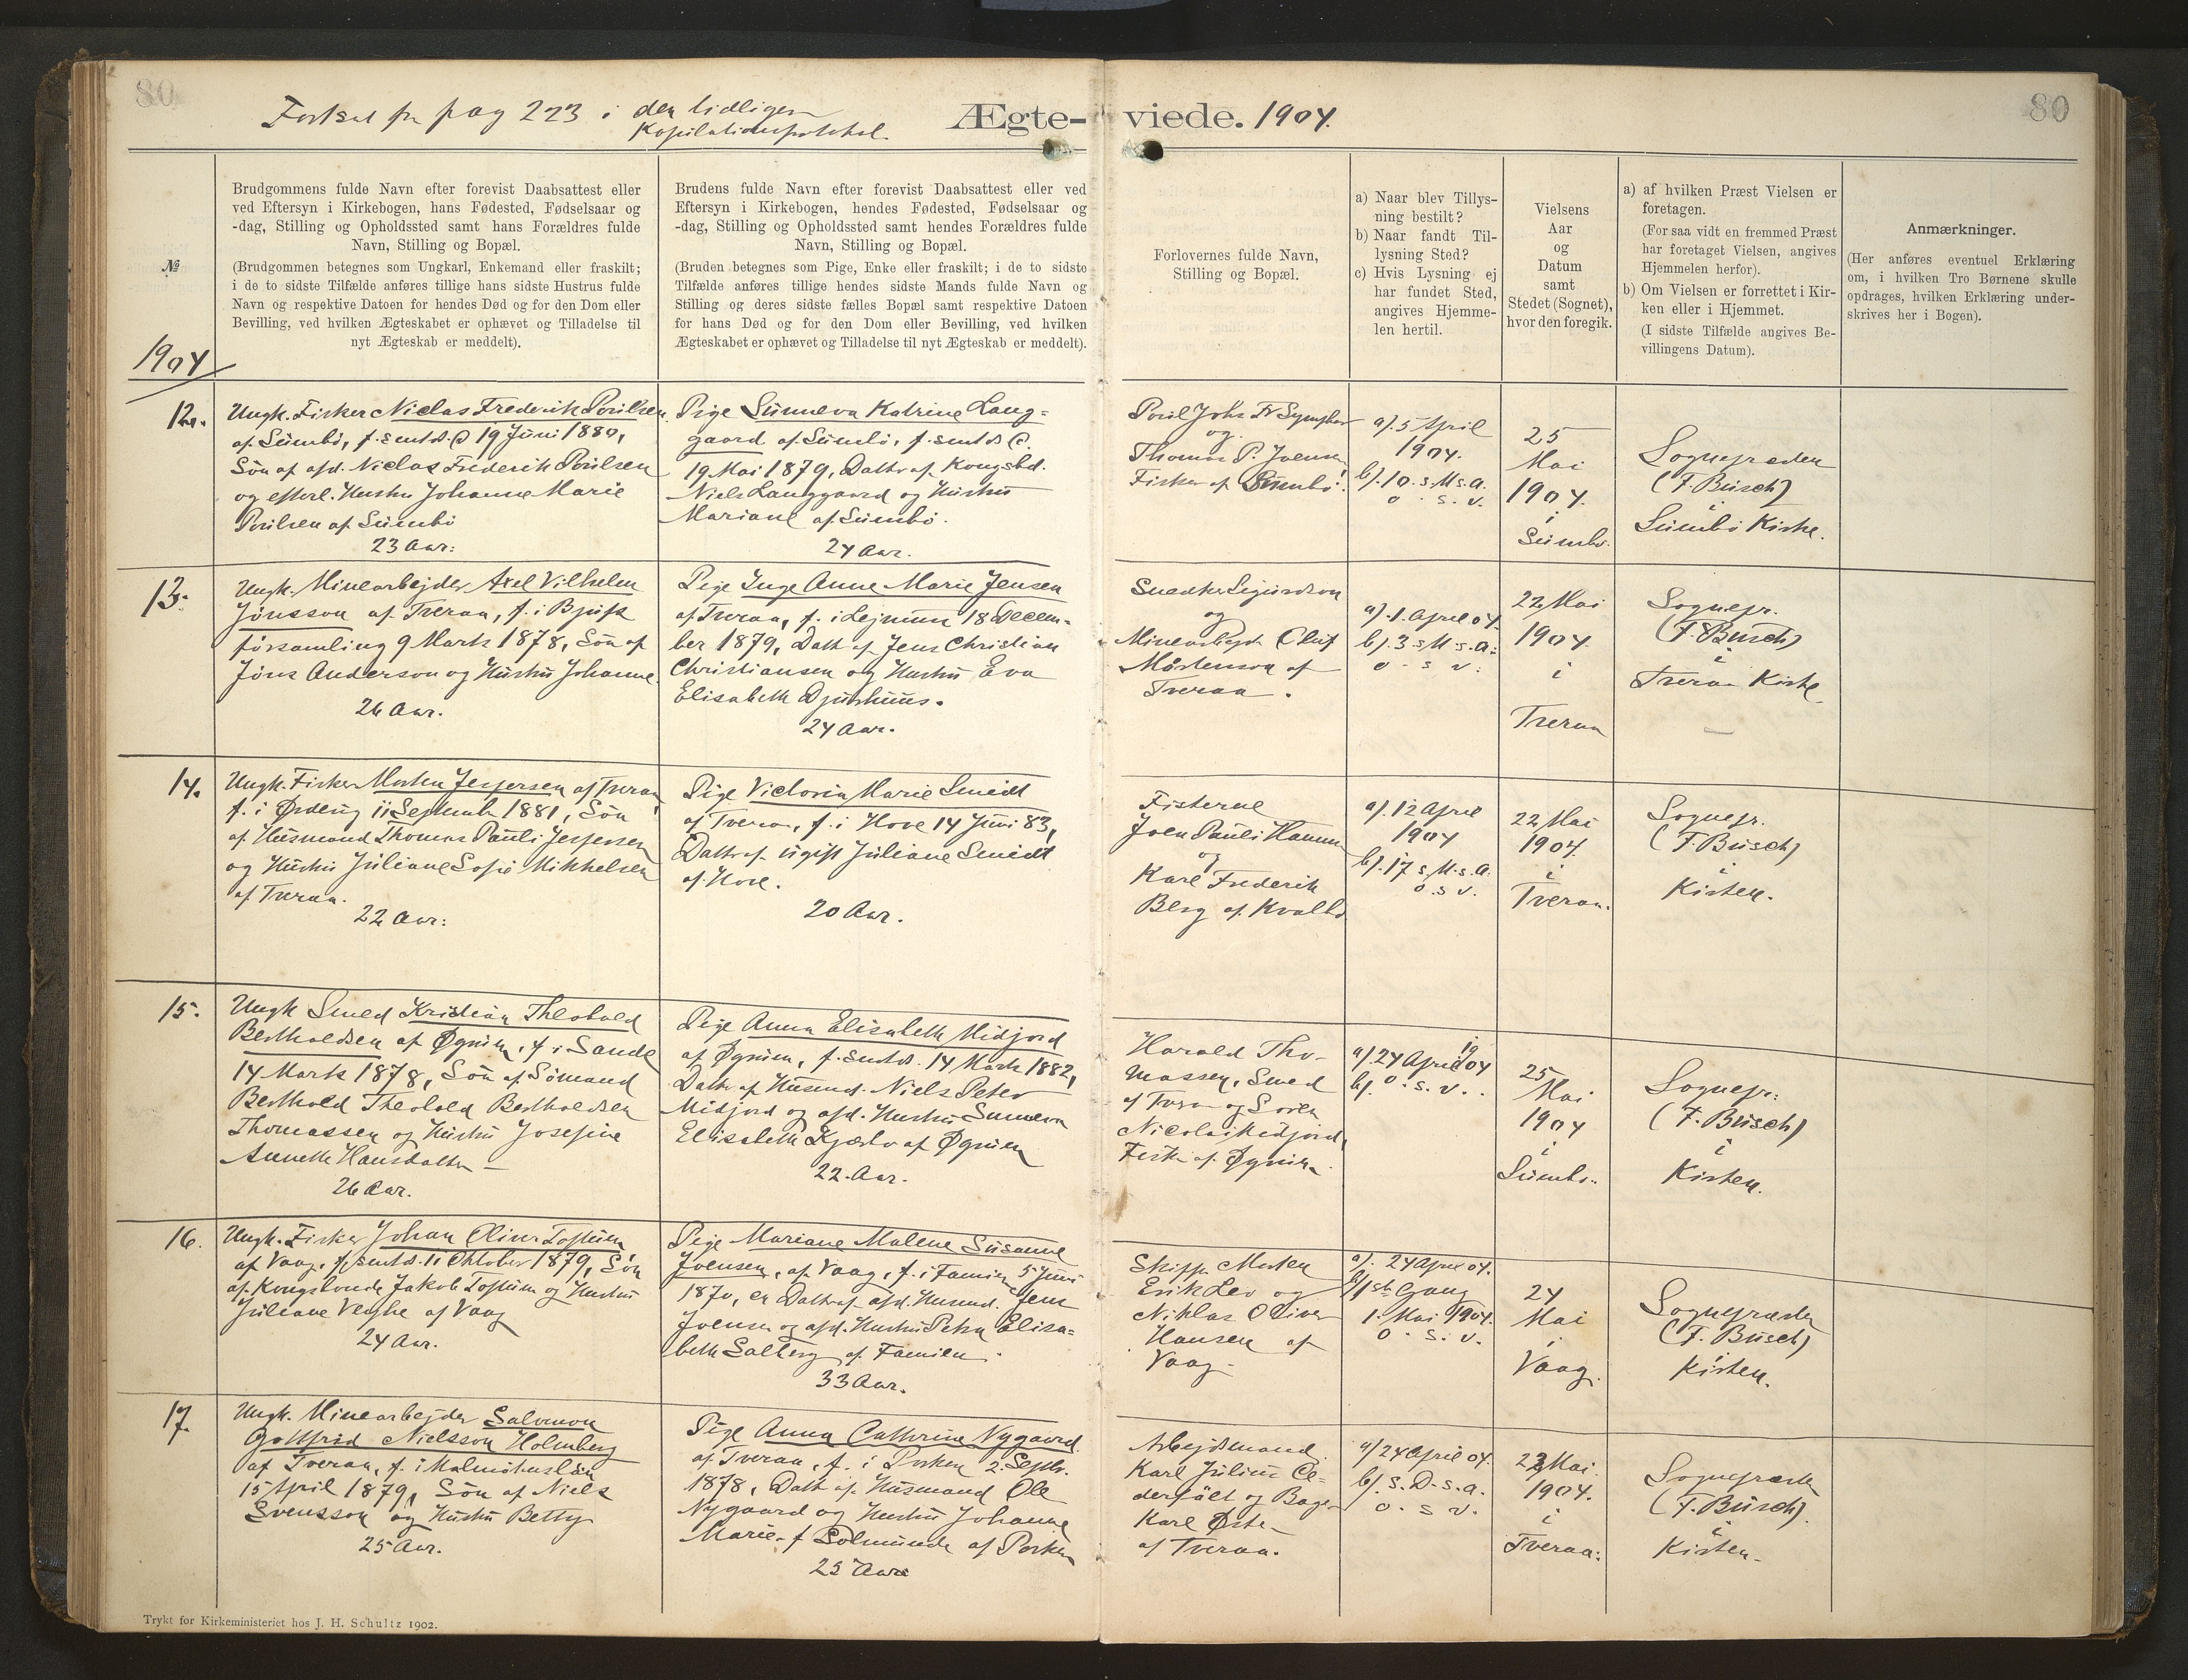 80
Fortsat fra pag 223 i den tidligere
Kopulationsprotokol.
Ægte-
viede. 1904.
80
№
1904
Brudgommens fulde Navn efter forevist Daabsattest eller
ved Eftersyn i Kirkebogen, hans Fødested, Fødselsaar og
-dag, Stilling og Opholdssted samt hans Forældres fulde
Navn, Stilling og Bopæl.
(Brudgommen betegnes som Ungkarl, Enkemand eller fraskilt;
i de to sidste Tilfælde anføres tillige hans sidste Hustrus fulde
Navn og respektive Datoen for hendes Død og for den Dom eller
Bevilling, ved hvilken Ægteskabet er ophævet og Tilladelse til
nyt Ægteskab er meddelt).
Brudens fulde Navn efter forevist Daabsattest eller ved
Eftersyn i Kirkebogen, hendes Fødested, Fødselsaar og
-dag, Stilling og Opholdssted samt hendes Forældres fulde
Navn, Stilling og Bopæl.
(Bruden betegnes som Pige, Enke eller fraskilt; i de to sidste
Tilfælde anføres tillige hendes sidste Mands fulde Navn og
Stilling og deres sidste fælles Bopæl samt respektive Datoen
for hans Død og for den Dom eller Bevilling, ved hvilken
Ægteskabet er ophævet og Tilladelse til nyt Ægteskab er meddelt).
Forlovernes fulde Navn,
Stilling og Bopæl.
a) Naar blev Tillys-
ning bestilt?
b) Naar fandt Til-
lysning Sted?
c) Hvis Lysning ej
har fundet Sted,
angives Hjemme-
len hertil.
Vielsens
Aar
og
Datum
samt
Stedet (Sognet),
hvor den foregik.
a) af hvilken Præst Vielsen er
foretagen.
(For saa vidt en fremmed Præst
har foretaget Vielsen, angives
Hjemmelen herfor).
b) Om Vielsen er forrettet i Kir-
ken eller i Hjemmet.
(I sidste Tilfælde angives Be-
villingens Datum).
Anmærkninger.
(Her anføres eventuel Erklæring
om, i hvilken Tro Børnene skulle
opdrages, hvilken Erklæring under-
skrives her i Bogen).
12.
Ungk. Fisker Niclas Frederik Poulsen
af Sumbø, f. smtds. 19 Juni 1880,
Søn af afd. Niclas Frederik Poulsen
og efterl. Hustru Johanne Marie
Poulsen af Sumbø
23 Aar.
Pige Sunneva Katrine Lang-
gaard af Sumbø, f. smtds.
19 Mai 1879, Datter af Kongsbd.
Niels Langgaard og Hustru
Mariane af Sumbø.
24 Aar.
Poul Johs Fr
og
Thomas P. Joensen
Fisker af Sumbø.
a). 5 April
1904.
b). 10. s. M. s. a.
o. s. v.
25
Mai
1904.
i
Sumbø.
Sognepræsten
(F. Busch)
i
Sumbø Kirke.
13.
Ungk. Minearbejder Axel Vilhelm
Jönsson af Tveraa, f. i Bjufs
församling 9 Marts 1878, Søn af
Jöns Anderson og Hustru Johanne.
26 Aar.
Pige Inge Anne Marie Jensen
af Tveraa, f. i Lejnum 18 Decem-
ber 1879, Datt. af Jens Christian
Christiansen og Hustru Eva
Elisabeth Djurhuus.
24 Aar.
Snedker Sigurdson
og
Minearbejder Oluf
Mårtenson af
Tveraa.
a). 1. April 04.
b). 3 s. M. s. a.
o. s. v.
22 Mai
1904.
i
Tveraa
Sognepr.
(F. Busch)
i
Tveraa Kirke.
14.
Ungk. Fisker Morten Jespersen af Tveraa
f. i Ørderig 11 September 1881, Søn
af Husmand Thomas Pauli Jespersen
og Hustru Juliane Sofie Mikkelsen
af Tveraa.
22 Aar.
Pige Victoria Marie Smidt
af Tveraa, f. i Hove 14 Juni 83,
Datter af ugift Juliane Smidt
af Hove.
20 Aar.
Fiskerne
Joen Pauli Hammer
og
Karl Frederik
Berg af Kvalbø
a). 12 April
1904
b). 17 s. M. s. a.
o. s. v.
22 Mai
1904.
i
Tveraa.
Sognepr.
(F. Busch)
i
Kirken.
15.
Ungk Smed Kristian Theobald
Bertholdsen af Øgnin, f. i Sande
14 Marts 1878, Søn af Sømand
Berthold Theobald Bertholdsen
Thomassen og Hustru Josefine
Annette Hansdatter
26 Aar.
Pige Anna Elisabeth Midjord
af Øgnin, f. smtds. 14 Marts 1882,
Datter af Husmd. Niels Peter
Midjord og afd. Hustru Sunneva
Elisabeth Kjælv af Øgnin
22 Aar.
Harald Tho-
massen, Smed
af Tveraa og Soren
Nicolai Midjord,
Fisker af Øgnin.
a). 24 April 1904
b). o. s. v.
25
Mai
1904
i
Sumbø.
Sognepr.
(F. Busch)
i
Kirken.
16.
Ungk. Fisker Johan Oliver Toftum
af Vaag, f. smtds. 11 Oktober 1879, Søn
af Kongsbonde Jakob Toftum og Hustru
Juliane Veghe af Vaag
24 Aar.
Pige Mariane Malene Susanne
Joensen, af Vaag, f. i Famien 5 Juni
1870, er Datter af afd. Husmd. Jens
Joensen og afd. Hustru Petra Elisa-
beth Solberg af Famien.
33 Aar.
Skipper Morten
Erik Lev og
Niklas Oliver
Hansen af
Vaag
a). 24 April 04.
b) 1ste Gang
1. Mai 1904.
o. s. v.
24
Mai
i
Vaag.
Sognepræsten
(F. Busch)
i
Kirken.
17.
Ungk. Minearbejder Salomon
Gottfrid Nielsson Holmberg
af Tveraa, f. i Malmöhuslän
15 April 1879, Søn af Niels
Svensson og Hustru Betty
25 Aar.
Pige Anna Cathrine Nygaard
af Tveraa, f. i Porken 2. Septb.
1878, Datt. af Husmand Ole
Nygaard og Hustru Johanne
Marie f. Solmunde af Porken
25 Aar
Arbejdsmand
Karl Julius Ce-
derfält og Bager
Karl Øste
af Tveraa.
a) 24 April 04.
b). s. D. s. a.
o. s. v.
22 Mai.
1904.
i
Tveraa.
Sognepræsten
(F. Busch).
i
Kirken.
Trykt for Kirkeministeriet hos J. H. Schultz 1902.